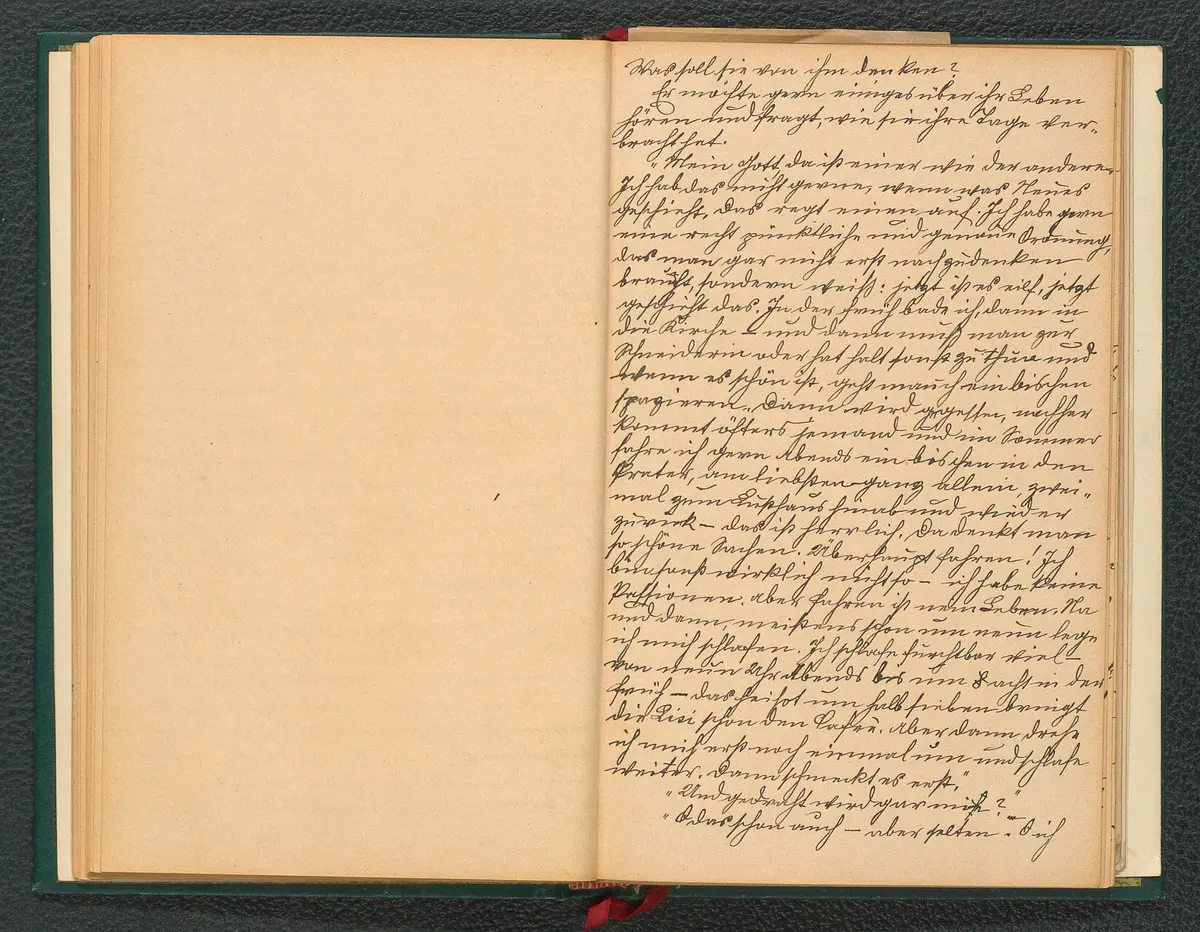 Was soll sie von ihm denken?
Er möchte gern einiges über ihr Leben
hören und fragt, wie sie ihre Tage ver-
bracht hat.
"Mein Gott, da ist einer wie der andere.
Ich hab das nicht gerne, wenn was Neues
geschieht, das regt einen auf. Ich habe gern
eine recht pünktliche und genaue Ordnung,
das man gar nicht erst nachzudenken
braucht, sondern weiß: jetzt ist es eilf, jetzt
geschieht das. In der früh bade ich, dann in
die Kirche – und dann muß man zur
Schneiderin oder hat halt sonst zu thun und
wenn es schön ist, geht man ein bischen
spazieren. Dann wird gegessen, nachher
kommt öfters jemand und im Sommer
fahre ich gern Abends ein bischen in den
Prater, am liebsten ganz allein, zwei-
mal zum Lusthaus hinab und wieder
zurück – das ist herrlich. Da denkt man
so schöne Sachen. Überhaupt fahren! Ich
bin sonst wirklich nicht so – ich habe keine
Passionen. Aber fahren ist mein Leben. Na
und dann, meistens schon um neun lege
ich mich schlafen. Ich schlafe furchtbar viel –
von neun Uhr Abends bis um acht in der
früh – das heißt um halb sieben bringt
die Lisi schon den Cafee. Aber dann drehe
ich mich erst noch einmal um und schlafe
weiter. Dann schmeckt es erst."
"Und gedraht wird gar nicht?"
"O das schon auch – aber selten". O ich